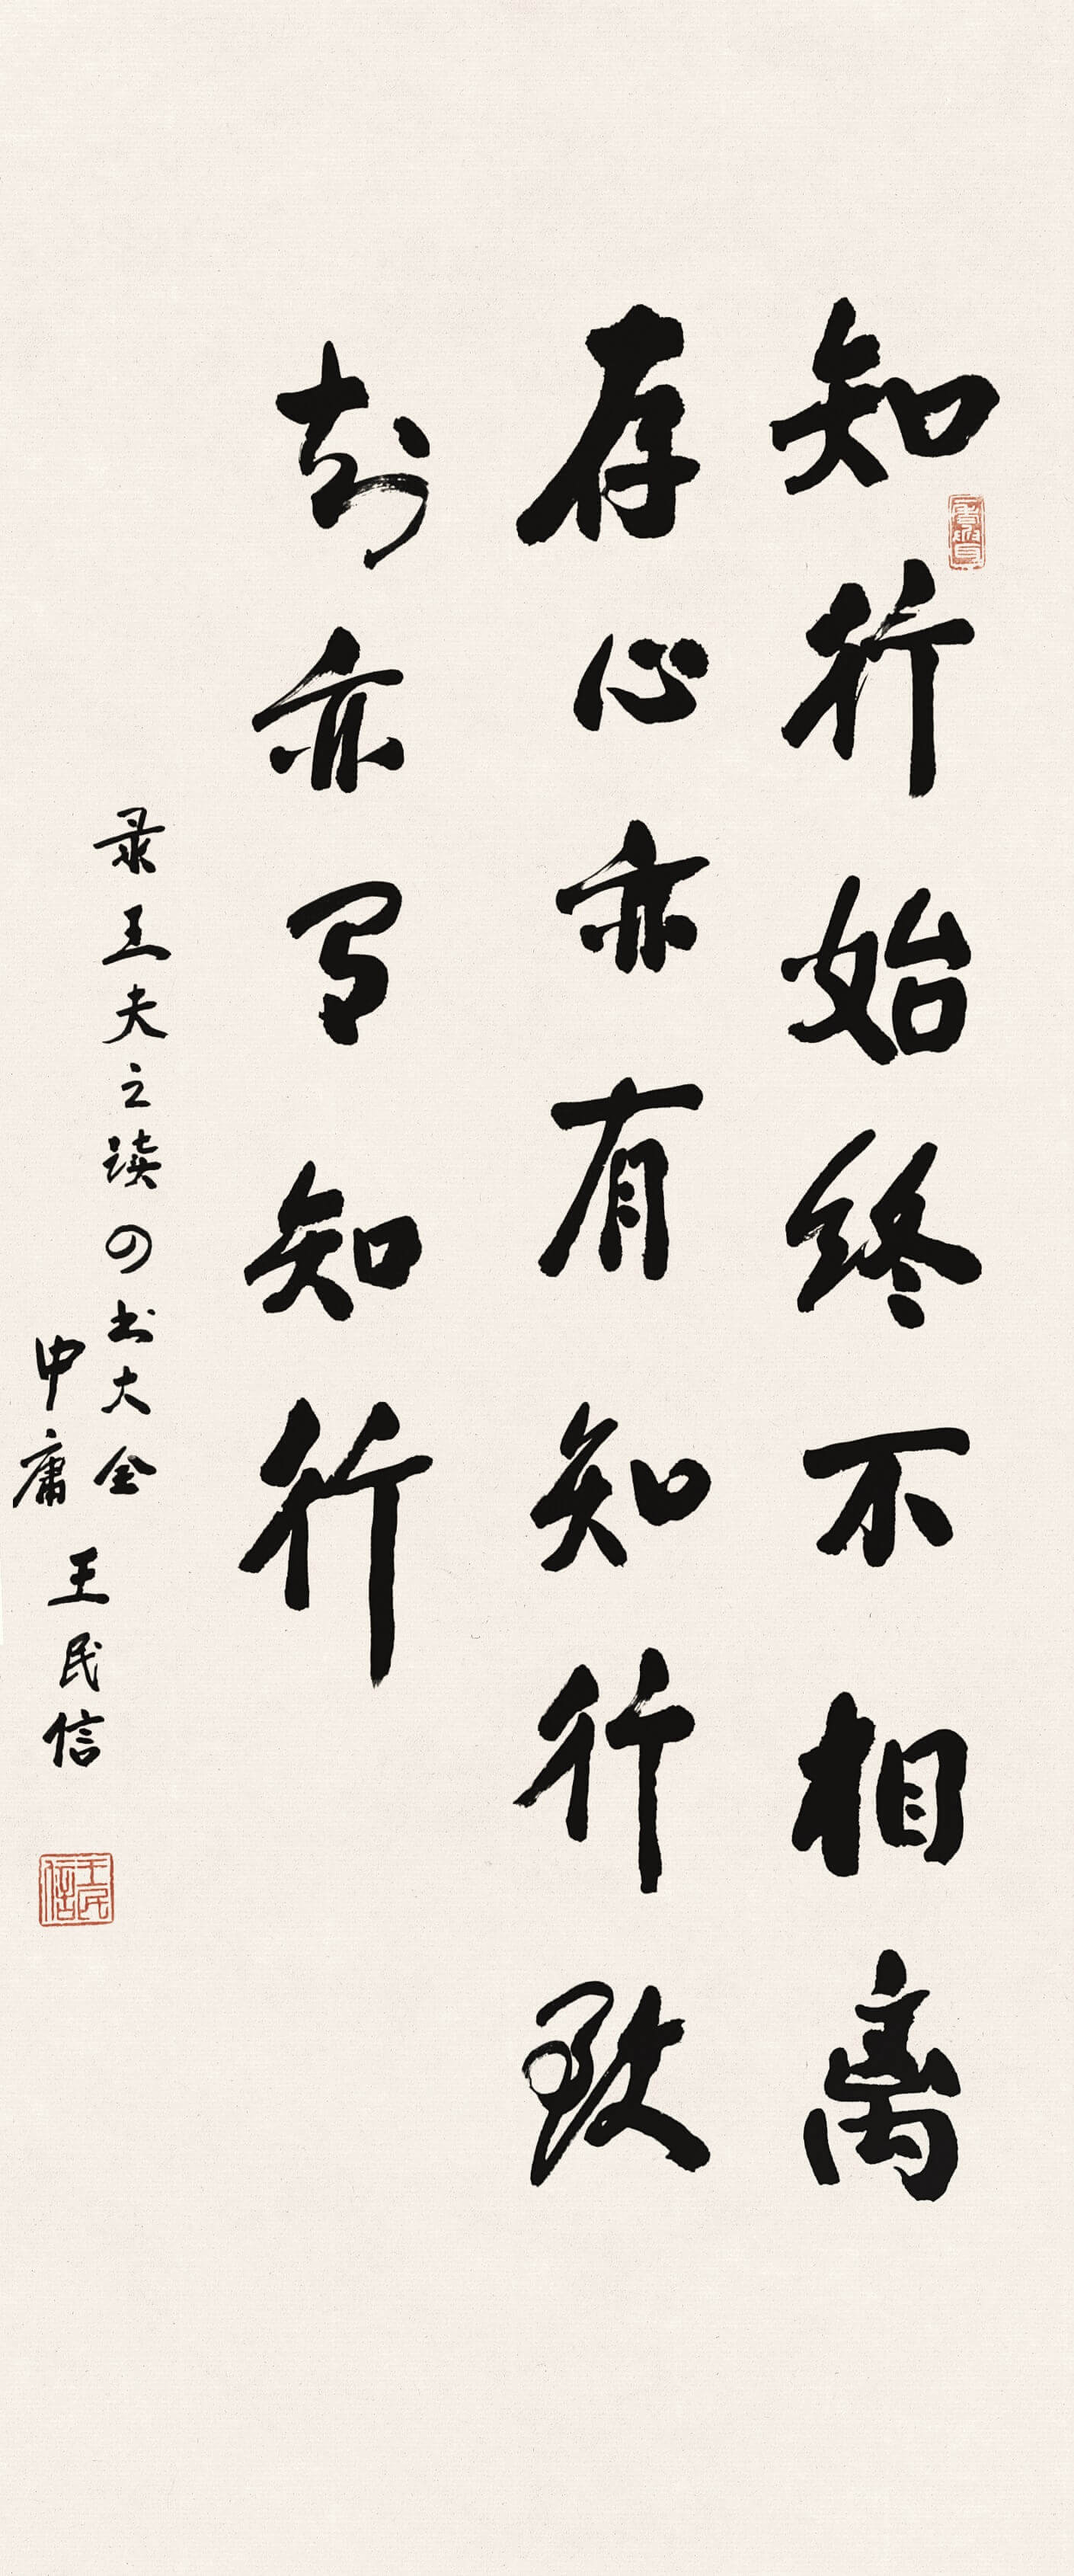 知行始终不相离
存心亦有知行致
知亦有知行
录王夫之读四书大全
中庸
王民信
王民信